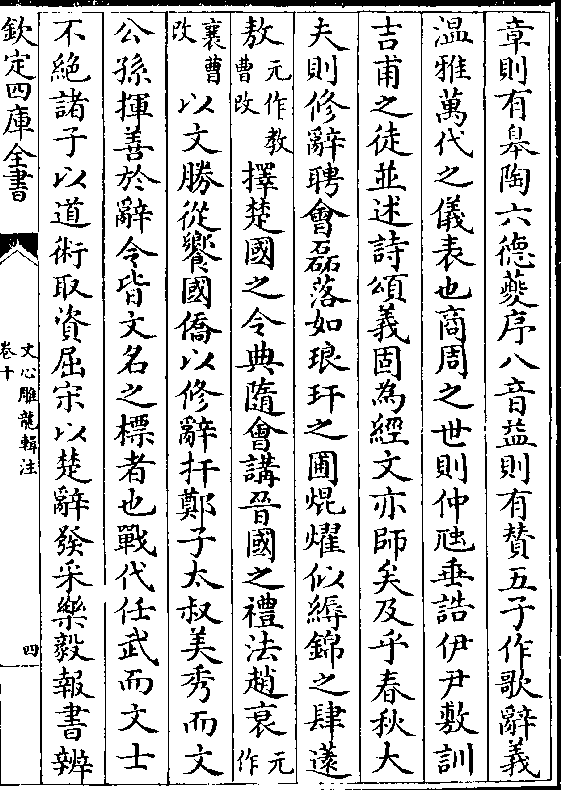 章則有皋陶六德夔序八音益則有贊五子作歌辭義
温雅萬代之儀表也商周之世則仲虺垂誥伊尹敷訓
吉甫之徒並述詩頌義固為經文亦師矣及乎春秋大
夫則修辭聘會磊落如琅玕之圃焜燿似縟錦之肆薳
敖元作教曹改擇楚國之令典隨會講晉國之禮法趙衰元作
襄曹改以文勝從饗國僑以修辭扞鄭子太叔美秀而文
公孫揮善於辭令皆文名之標者也戰代任武而文士
不絕諸子以道術取資屈宋以楚辭發采樂毅報書辨
欽定四庫全書
文心雕龍輯注
卷十
四